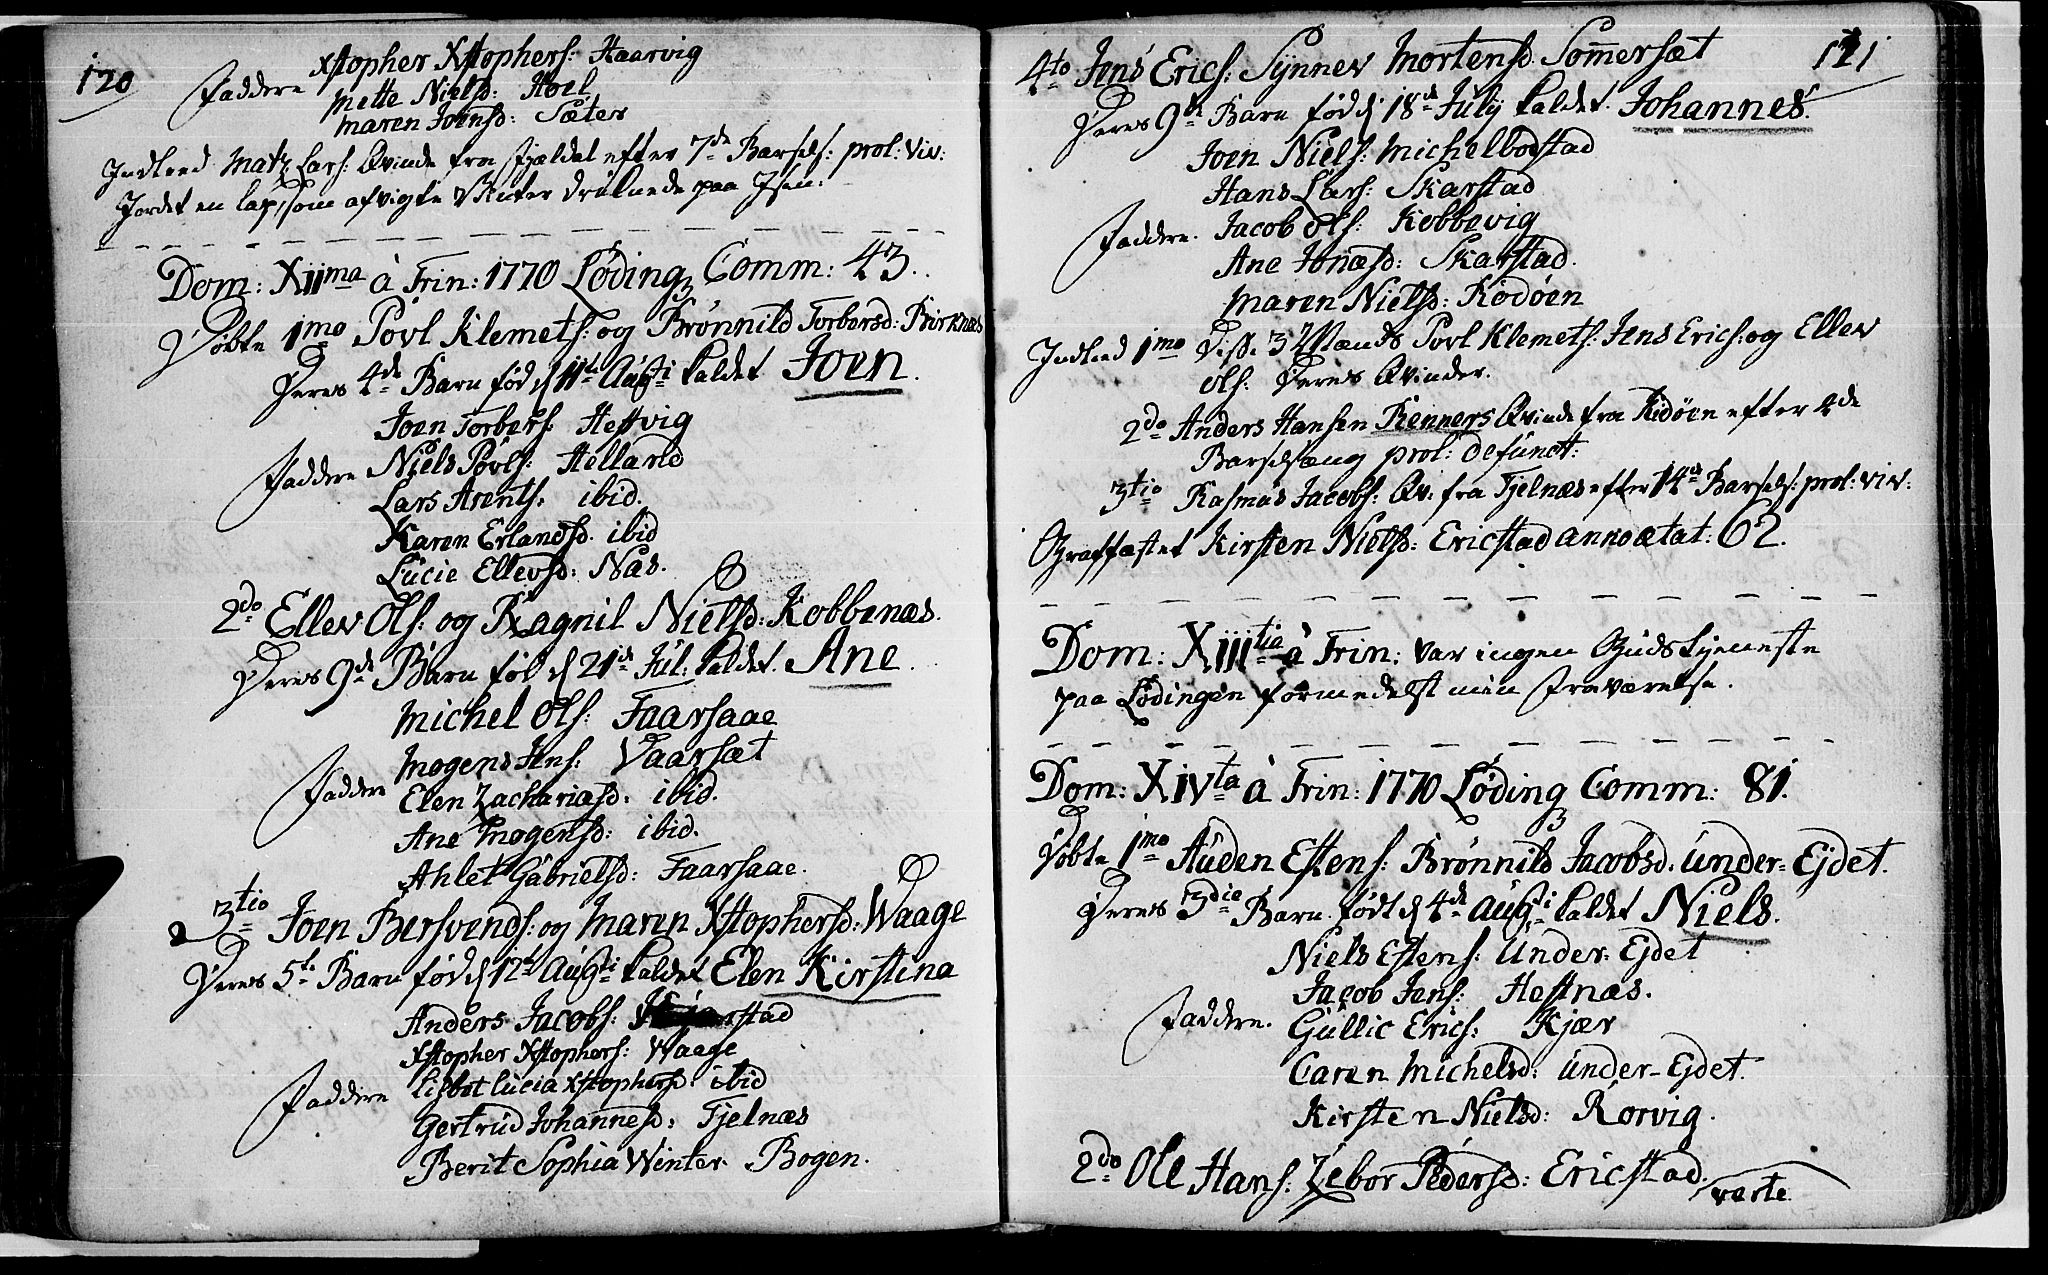 120
Xstopher Xstophers: Haarvig
Faddere Mette Nielsd: Hoel
Maren Joensd: Sæter
Indleed Matz Lars: Qvinde fra Fjældal efter 7de Barsels: prol: viv:
Jordet en lap, som afvigte Vinter druknede paa Isen:
Dom: XIIma à Trin: 1770 Løding Comm: 43.
Døbte 1mo Povl Klemets: og Brønnild Torbersd: Birknæs
Deres 4de Barn fød d 11te Augti kaldet Joen.
Joen Torbers: Hestvig
Faddere Niels Povls: Helland
Lars Arents: ibid.
Karen Erlandsd. ibid
Lucie Ellevsd: Næs.
2do Ellev Ols: og Ragnil Nielsd: Kobbenæs.
Deres 9de Barn fød d 21de Jul: kaldet Ane.
Michel Ols: Faarsaae
Mogens Jens: Vaarsæt
Faddere Elen Zachariæsd: ibid.
Ane Mogensd: ibid.
Ahlet Gabrielsd: Faarsaae.
3tio Joen Bersvends: og Maren Xstophersd: Waage
Deres 5te Barn fød d 12te Augti kaldet Elen Kirstina
Anders Jacobs:
Xstopher Xstophers: Waage
Faddere Lisbet Lucia Xstophersd: ibid
Gertrud Johannesd: Tjelnæs
Berit Sophia Winter. Bogen.
121
4to Jens Erics: Synnev Mortensd. Somersæt
Deres 9de Barn fød d 18de July kaldet Johannes.
Joen Niels: Michelbostad
Hans Lars: Skarstad
Faddere. Jacob Ols: Kobbevig
Ane Jonæsd: Skarstad.
Maren Nielsd: Rødøen
Indleed 1mo Diss. 3 Mænds Povl Klemets: Jens Erics: og Ellev
Ols: Deres Qvinder.
2do Anders Hansen Renners Qvinde fra Ridøen efter 2de
Barselsæng prol: defunct:
3tio Rasmus Jacobs: Qv: fra Tjelnæs efter 14de Barsels: prol: viv:
Graffæstet Kirsten Nielsd: Ericstad anno ætat: 62.
Dom: XIIItia à Trin: var ingen Guds tjeneste
paa Lødingen formedelst min fraværelse.
Dom: XIVta à Trin: 1770 Løding Comm: 81.
Døbte 1mo Auden Estens: Brønnild Jacobsd. Under=Ejdet.
Deres 3die Barn født d 4de Augti kaldet Niels.
Niels Estens: Under: Ejdet
Jacob Jens: Hestnæs.
Faddere. Gullic Erics: Kjær
Caren Michelsd: Under-Ejdet.
Kirsten Nielsd: Rørvig.
2do Ole Hans: Zebor Pedersd: Ericstad.
verte.